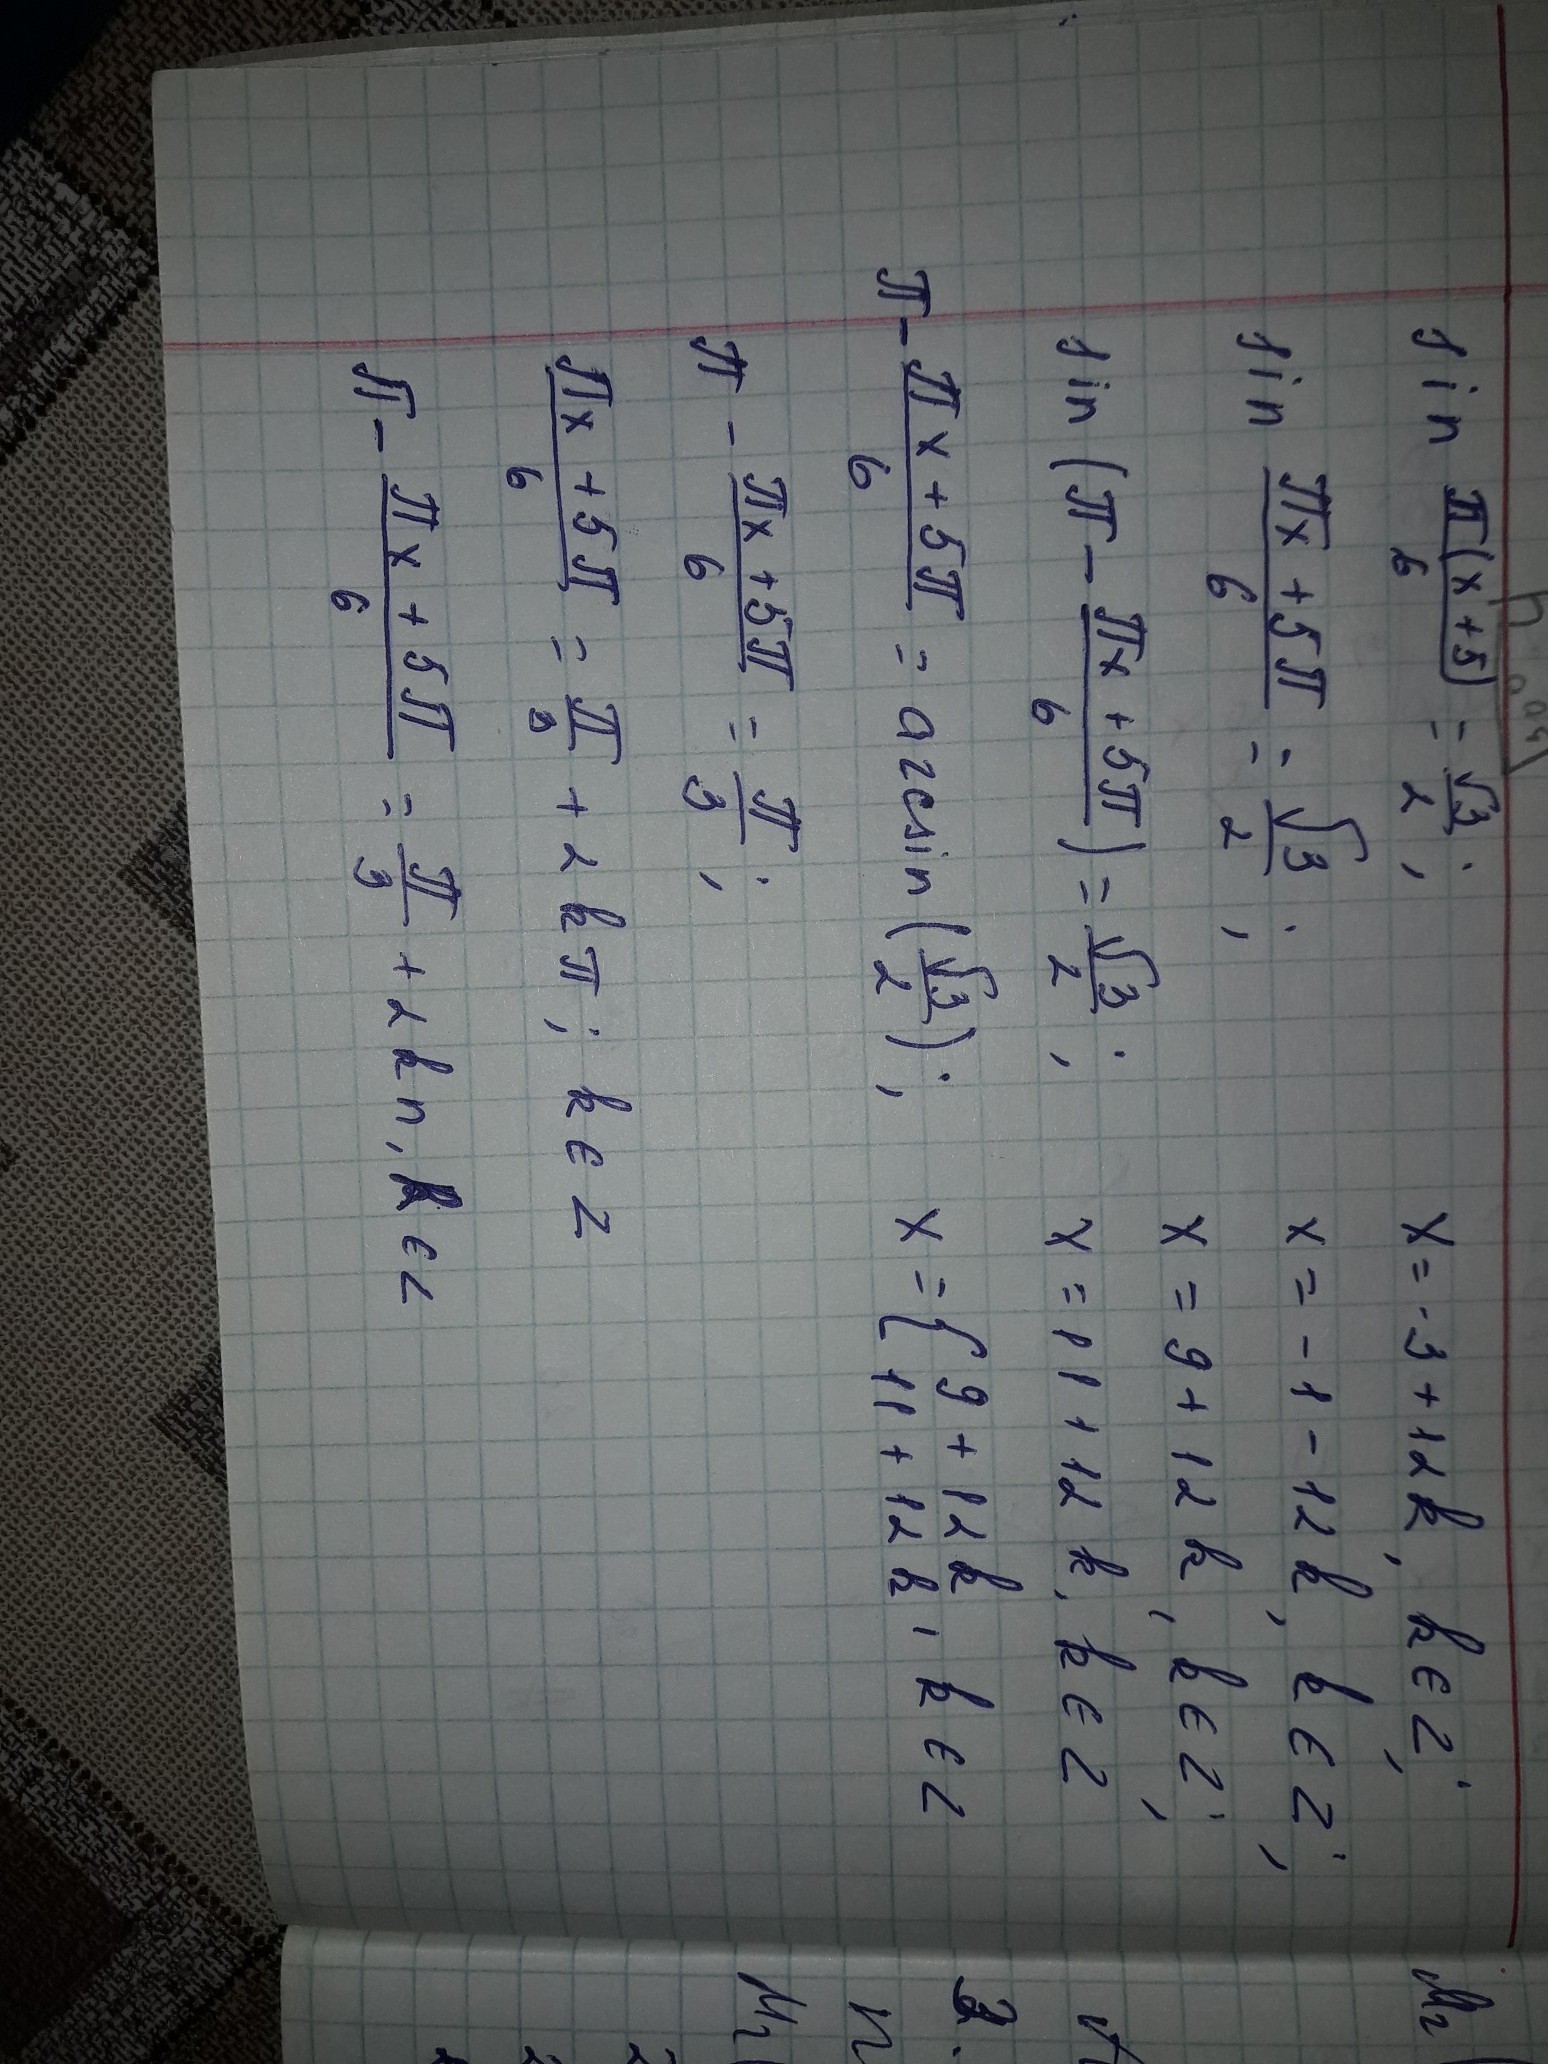 sin π(x+5)/6 = √3/2;
sin πx+5π/6 = √3/2;
sin(π - πx+5π/6) = √3/2;
π - πx+5π/6 = arcsin(√3/2);
π - πx+5π/6 = π/3;
πx+5π/6 = π/3 + 2kπ; k∈Z
π - πx+5π/6 = π/3 + 2kπ, k∈Z
x = -3 + 12k, k∈Z;
x = -1 - 12k, k∈Z;
x = 9 + 12k, k∈Z;
x = 11 + 12k, k∈Z
x = { 9 + 12k
11 + 12k, k∈Z